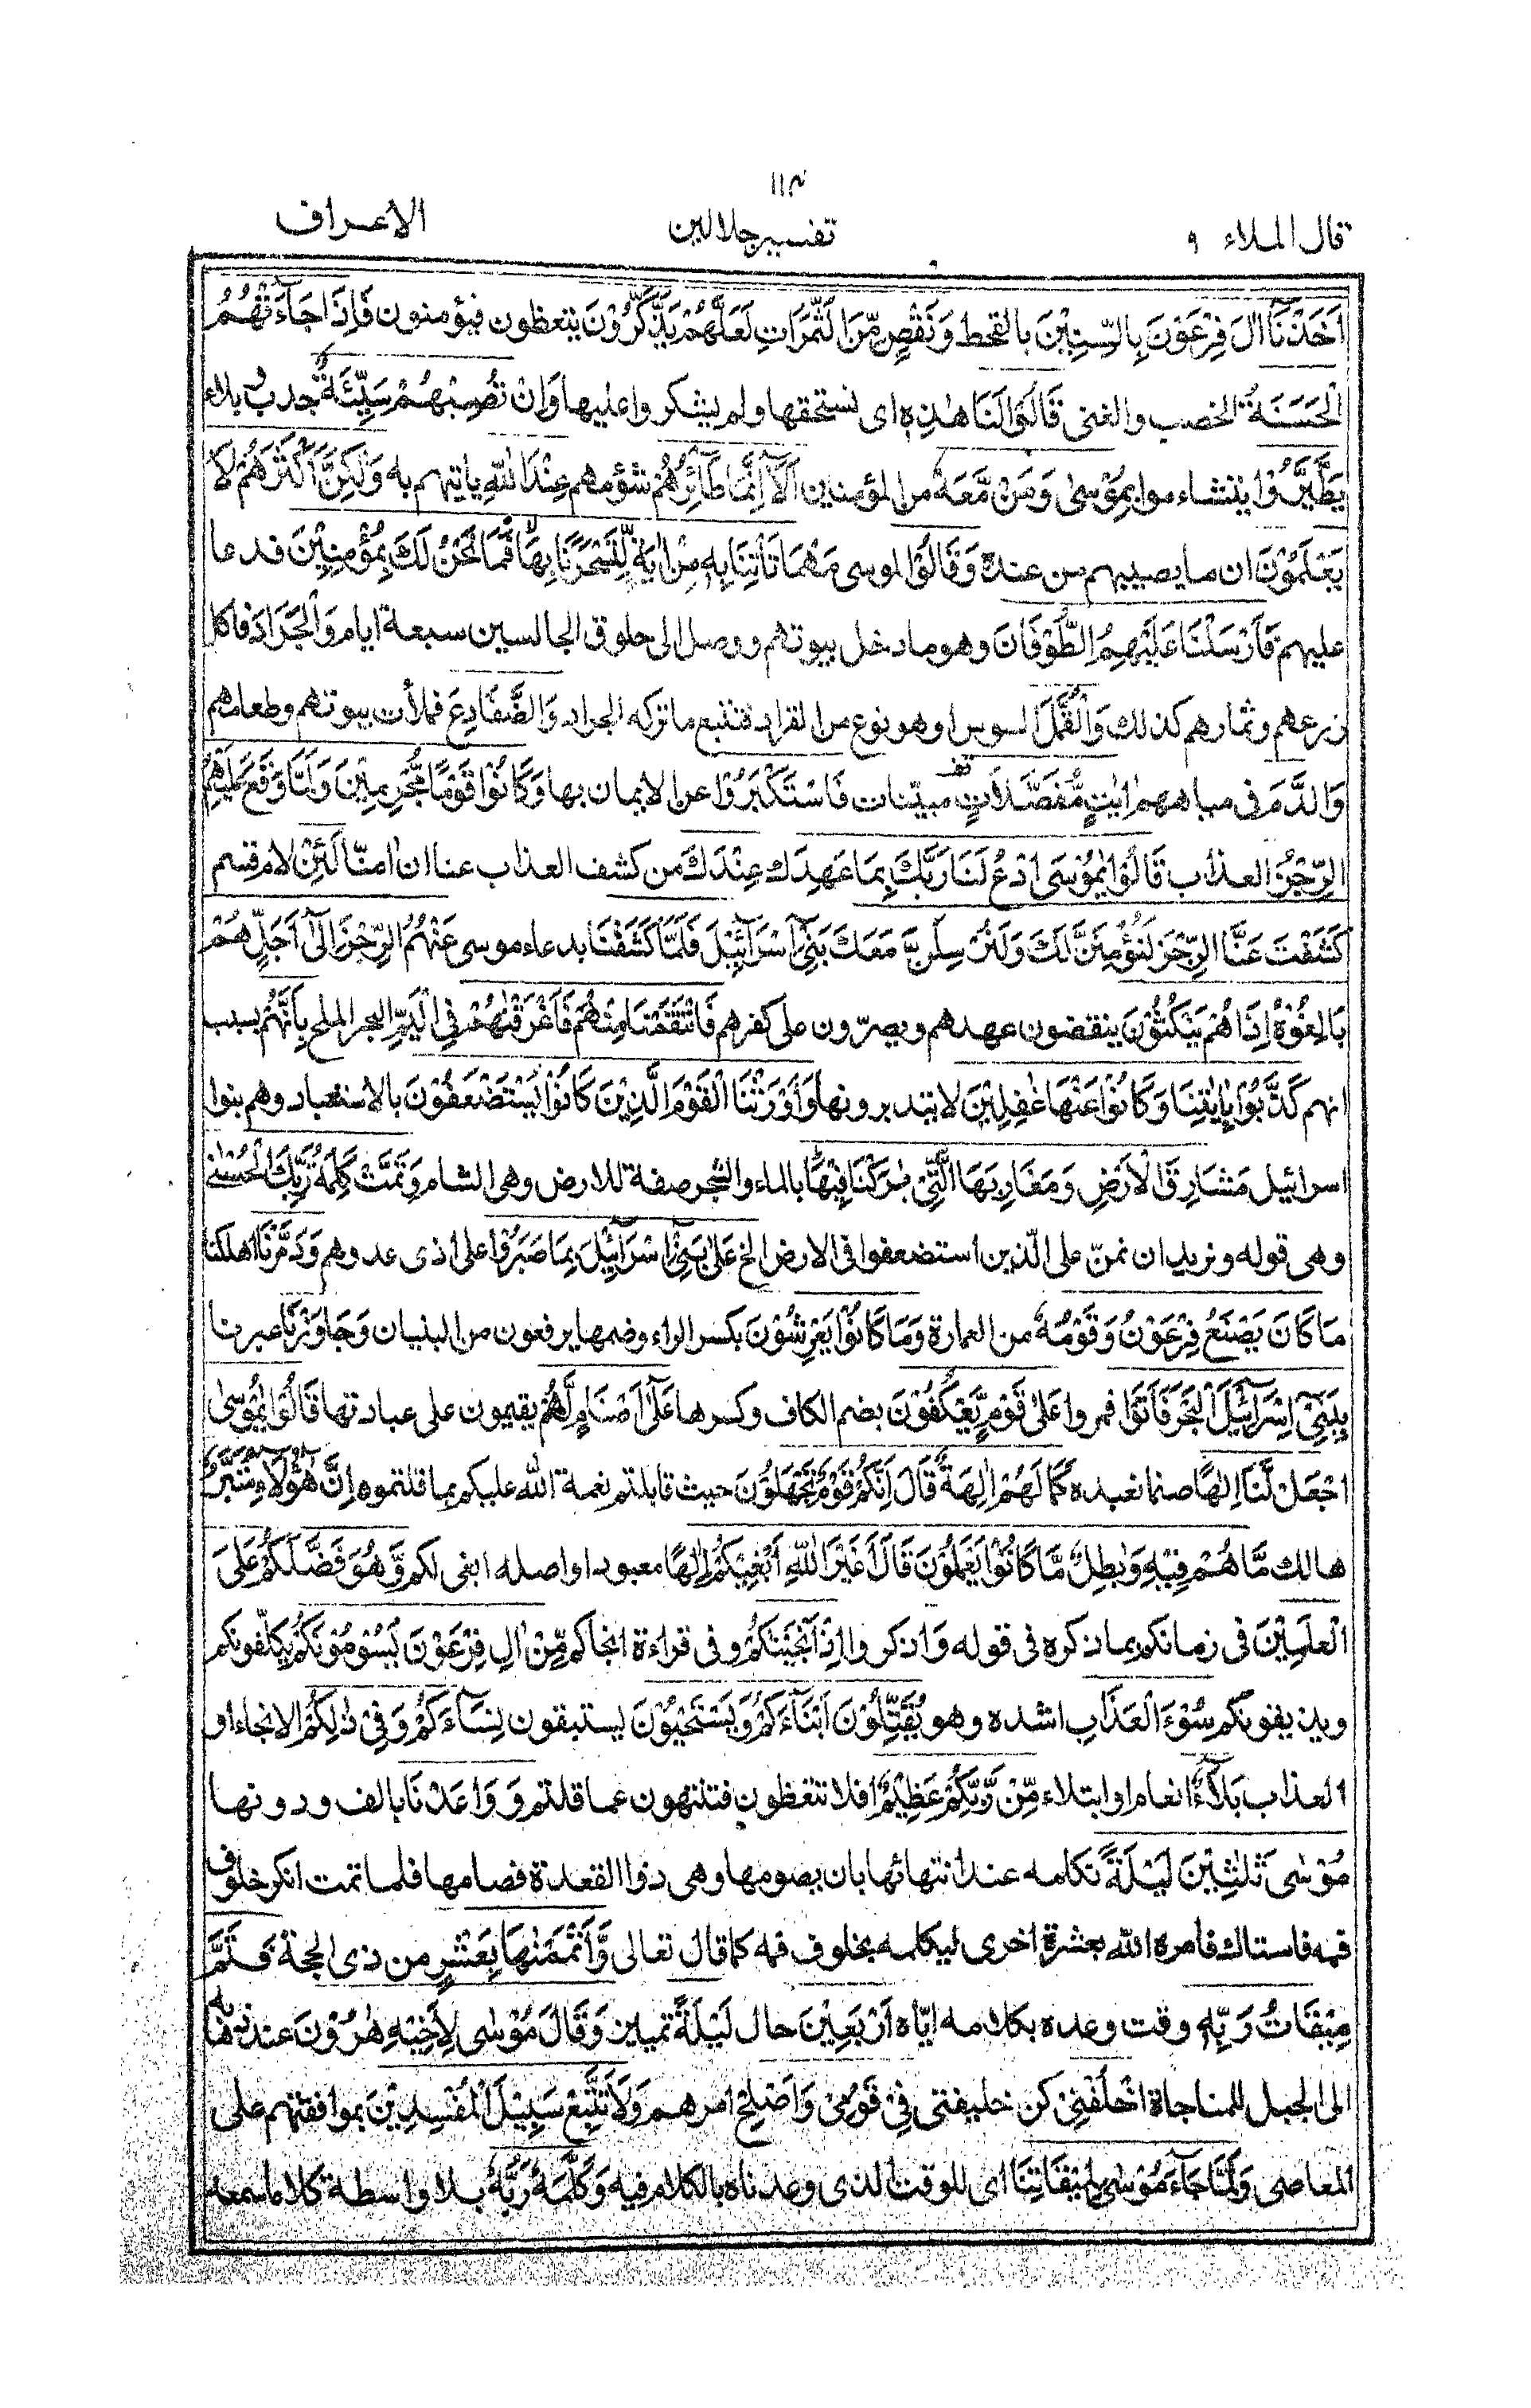 ١١٣
قال الملاء ٩ تفسير جلالين الاعراف
اَخَذْنَآ اٰلَ فِرْعَوْنَ بِالسِّنِيْنَ بالقحط وَنَقْصٍ مِّنَ الثَّمَرَاتِ لَعَلَّهُمْ يَذَّكَّرُوْنَ يتعظون فيؤمنون فَاِذَا جَآءَتْهُمُ
الْحَسَنَةُ الخصب والغنى قَالُوْا لَنَا هٰذِهٖ اى نستحقها ولم يشكروا عليها وَاِنْ تُصِبْهُمْ سَيِّئَةٌ جدب وبلاء
يَطَّيَّرُوْا يتشاءموا بِمُوْسٰى وَمَنْ مَّعَهٗ من المؤمنين اَلَآ اِنَّمَا طَآئِرُهُمْ شؤمهم عِنْدَ اللّٰهِ ياتيهم به وَلٰكِنَّ اَكْثَرَهُمْ لَا
يَعْلَمُوْنَ ان ما يصيبهم من عنده وَقَالُوْا لموسى مَهْمَا تَأْتِنَا بِهٖ مِنْ اٰيَةٍ لِّتَسْحَرَنَا بِهَا فَمَا نَحْنُ لَكَ بِمُؤْمِنِيْنَ فدعا
عليهم فَاَرْسَلْنَا عَلَيْهِمُ الطُّوْفَانَ وهو ما دخل بيوتهم ووصل الى حلوق الجالسين سبعة ايام وَالْجَرَادَ فاكل
زرعهم وثمارهم كذلك وَالْقُمَّلَ السوس او هو نوع من القراد فتتبع ما تركه الجراد وَالضَّفَادِعَ فملأت بيوتهم وطعامهم
وَالدَّمَ فى مياههم اٰيٰتٍ مُّفَصَّلَاتٍ مبيّنات فَاسْتَكْبَرُوْا عن الايمان بها وَكَانُوْا قَوْمًا مُّجْرِمِيْنَ وَلَمَّا وَقَعَ عَلَيْهِمُ
الرِّجْزُ العذاب قَالُوْا يٰمُوْسَى ادْعُ لَنَا رَبَّكَ بِمَا عَهِدَ عِنْدَكَ من كشف العذاب عنا ان اٰمنّا لَئِنْ لام قسم
كَشَفْتَ عَنَّا الرِّجْزَ لَنُؤْمِنَنَّ لَكَ وَلَنُرْسِلَنَّ مَعَكَ بَنِىْٓ اِسْرَآئِيْلَ فَلَمَّا كَشَفْنَا بدعاء موسى عَنْهُمُ الرِّجْزَ اِلٰٓى اَجَلٍ هُمْ
بَالِغُوْهُ اِذَا هُمْ يَنْكُثُوْنَ ينقضون عهدهم ويصرّون على كفرهم فَانْتَقَمْنَا مِنْهُمْ فَاَغْرَقْنٰهُمْ فِى الْيَمِّ البحر الملح بِاَنَّهُمْ بسبب
انهم كَذَّبُوْا بِاٰيٰتِنَا وَكَانُوْا عَنْهَا غٰفِلِيْنَ لا يتدبرونها وَاَوْرَثْنَا الْقَوْمَ الَّذِيْنَ كَانُوْا يُسْتَضْعَفُوْنَ بالاستعباد وهم بنوا
اسرائيل مَشَارِقَ الْاَرْضِ وَمَغَارِبَهَا الَّتِىْ بٰرَكْنَا فِيْهَا بالماء والشجر صفة للارض وهى الشام وَتَمَّتْ كَلِمَةُ رَبِّكَ الْحُسْنٰى
وهى قوله ونريد ان نمنّ على الّذين استضعفوا فى الارض الخ عَلٰى بَنِىْٓ اِسْرَآئِيْلَ بِمَا صَبَرُوْا على اذى عدوهم وَدَمَّرْنَا اهلكنا
مَا كَانَ يَصْنَعُ فِرْعَوْنُ وَقَوْمُهٗ من العمارة وَمَا كَانُوْا يَعْرِشُوْنَ بكسر الراء وضمها يرفعون من البنيان وَجَاوَزْنَا عبرنا
بِبَنِىْٓ اِسْرَآئِيْلَ الْبَحْرَ فَاَتَوْا فمروا عَلٰى قَوْمٍ يَّعْكُفُوْنَ بضم الكاف وكسرها عَلٰٓى اَصْنَامٍ لَّهُمْ يقيمون على عبادتها قَالُوْا يٰمُوْسٰى
اجْعَلْ لَّنَآ اِلٰهًا صنما نعبده كَمَا لَهُمْ اٰلِهَةٌ قَالَ اِنَّكُمْ قَوْمٌ تَجْهَلُوْنَ حيث قابلتم نعمة الله عليكم بما قلتموه اِنَّ هٰٓؤُلَآءِ مُتَبَّرٌ
هالك مَّا هُمْ فِيْهِ وَبٰطِلٌ مَّا كَانُوْا يَعْمَلُوْنَ قَالَ اَغَيْرَ اللّٰهِ اَبْغِيْكُمْ اِلٰهًا معبودا واصله ابغى لكم وَّهُوَ فَضَّلَكُمْ عَلَى
الْعٰلَمِيْنَ فى زمانكم بما ذكره فى قوله وَ اذكروا اِذْ اَنْجَيْنٰكُمْ وفى قراءة انجاكم مِّنْ اٰلِ فِرْعَوْنَ يَسُوْمُوْنَكُمْ يكلّفونكم
ويذيقونكم سُوْٓءَ الْعَذَابِ اشده وهو يُقَتِّلُوْنَ اَبْنَآءَكُمْ وَيَسْتَحْيُوْنَ يستبقون نِسَآءَكُمْ وَفِىْ ذٰلِكُمْ الانجاء او
العذاب بَلَآءٌ انعام او ابتلاء مِّنْ رَّبِّكُمْ عَظِيْمٌ افلا تتعظون فتنتهون عما قلتم وَ وَاعَدْنَا بالف ودونها
مُوْسٰى ثَلٰثِيْنَ لَيْلَةً نكلمه عند انتهائها بان يصومها وهى ذوا القعدة فصامها فلما تمت انكر خلوف
فمه فاستاك فأمره الله بعشرة اخرى ليكلمه بخلوف فمه كما قال تعالى وَّاَتْمَمْنٰهَا بِعَشْرٍ من ذى الحجة فَتَمَّ
مِيْقَاتُ رَبِّهٖٓ وقت وعده بكلامه ايّاه اَرْبَعِيْنَ حال لَيْلَةً تمييز وَقَالَ مُوْسٰى لِاَخِيْهِ هٰرُوْنَ عند ذهابه
الى الجبل للمناجاة اخْلُفْنِىْ كن خليفتى فِىْ قَوْمِىْ وَاَصْلِحْ امرهم وَلَا تَتَّبِعْ سَبِيْلَ الْمُفْسِدِيْنَ بموافقتهم على
المعاصى وَلَمَّا جَآءَ مُوْسٰى لِمِيْقَاتِنَا اى للوقت الذى وعدناه بالكلام فيه وَكَلَّمَهٗ رَبُّهٗ بلا واسطة كلاما سمعه